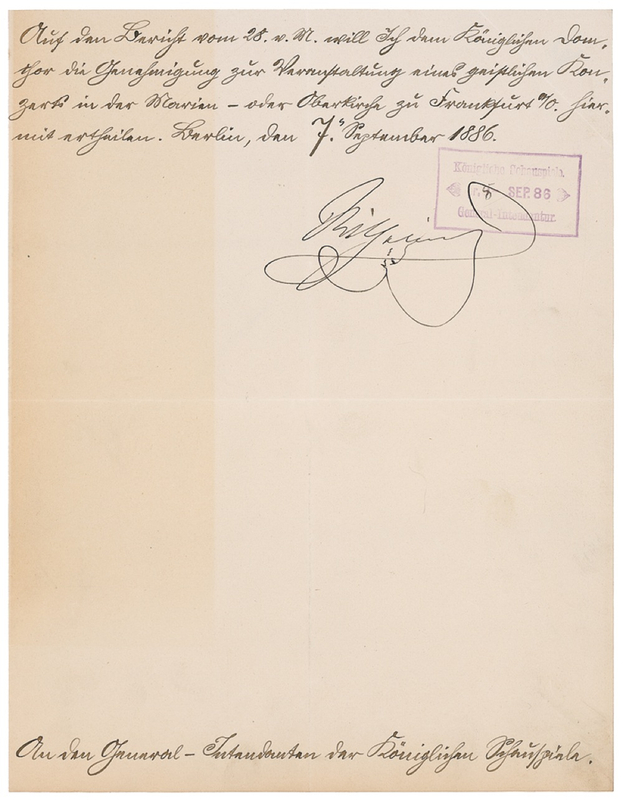 Auf den Bericht vom 28. v. M. will Ich dem Königlichen Dom-
chor die Genehmigung zur Veranstaltung eines geistlichen Kon-
zerts in der Marien- oder Oberkirche zu Frankfurt a/O. hier-
mit ertheilen. Berlin, den 7. September 1886.
Königliche Schauspiele.
8 SEP. 86
General-Intendantur.
Wilhelm
An den General-Intendanten der Königlichen Schauspiele.